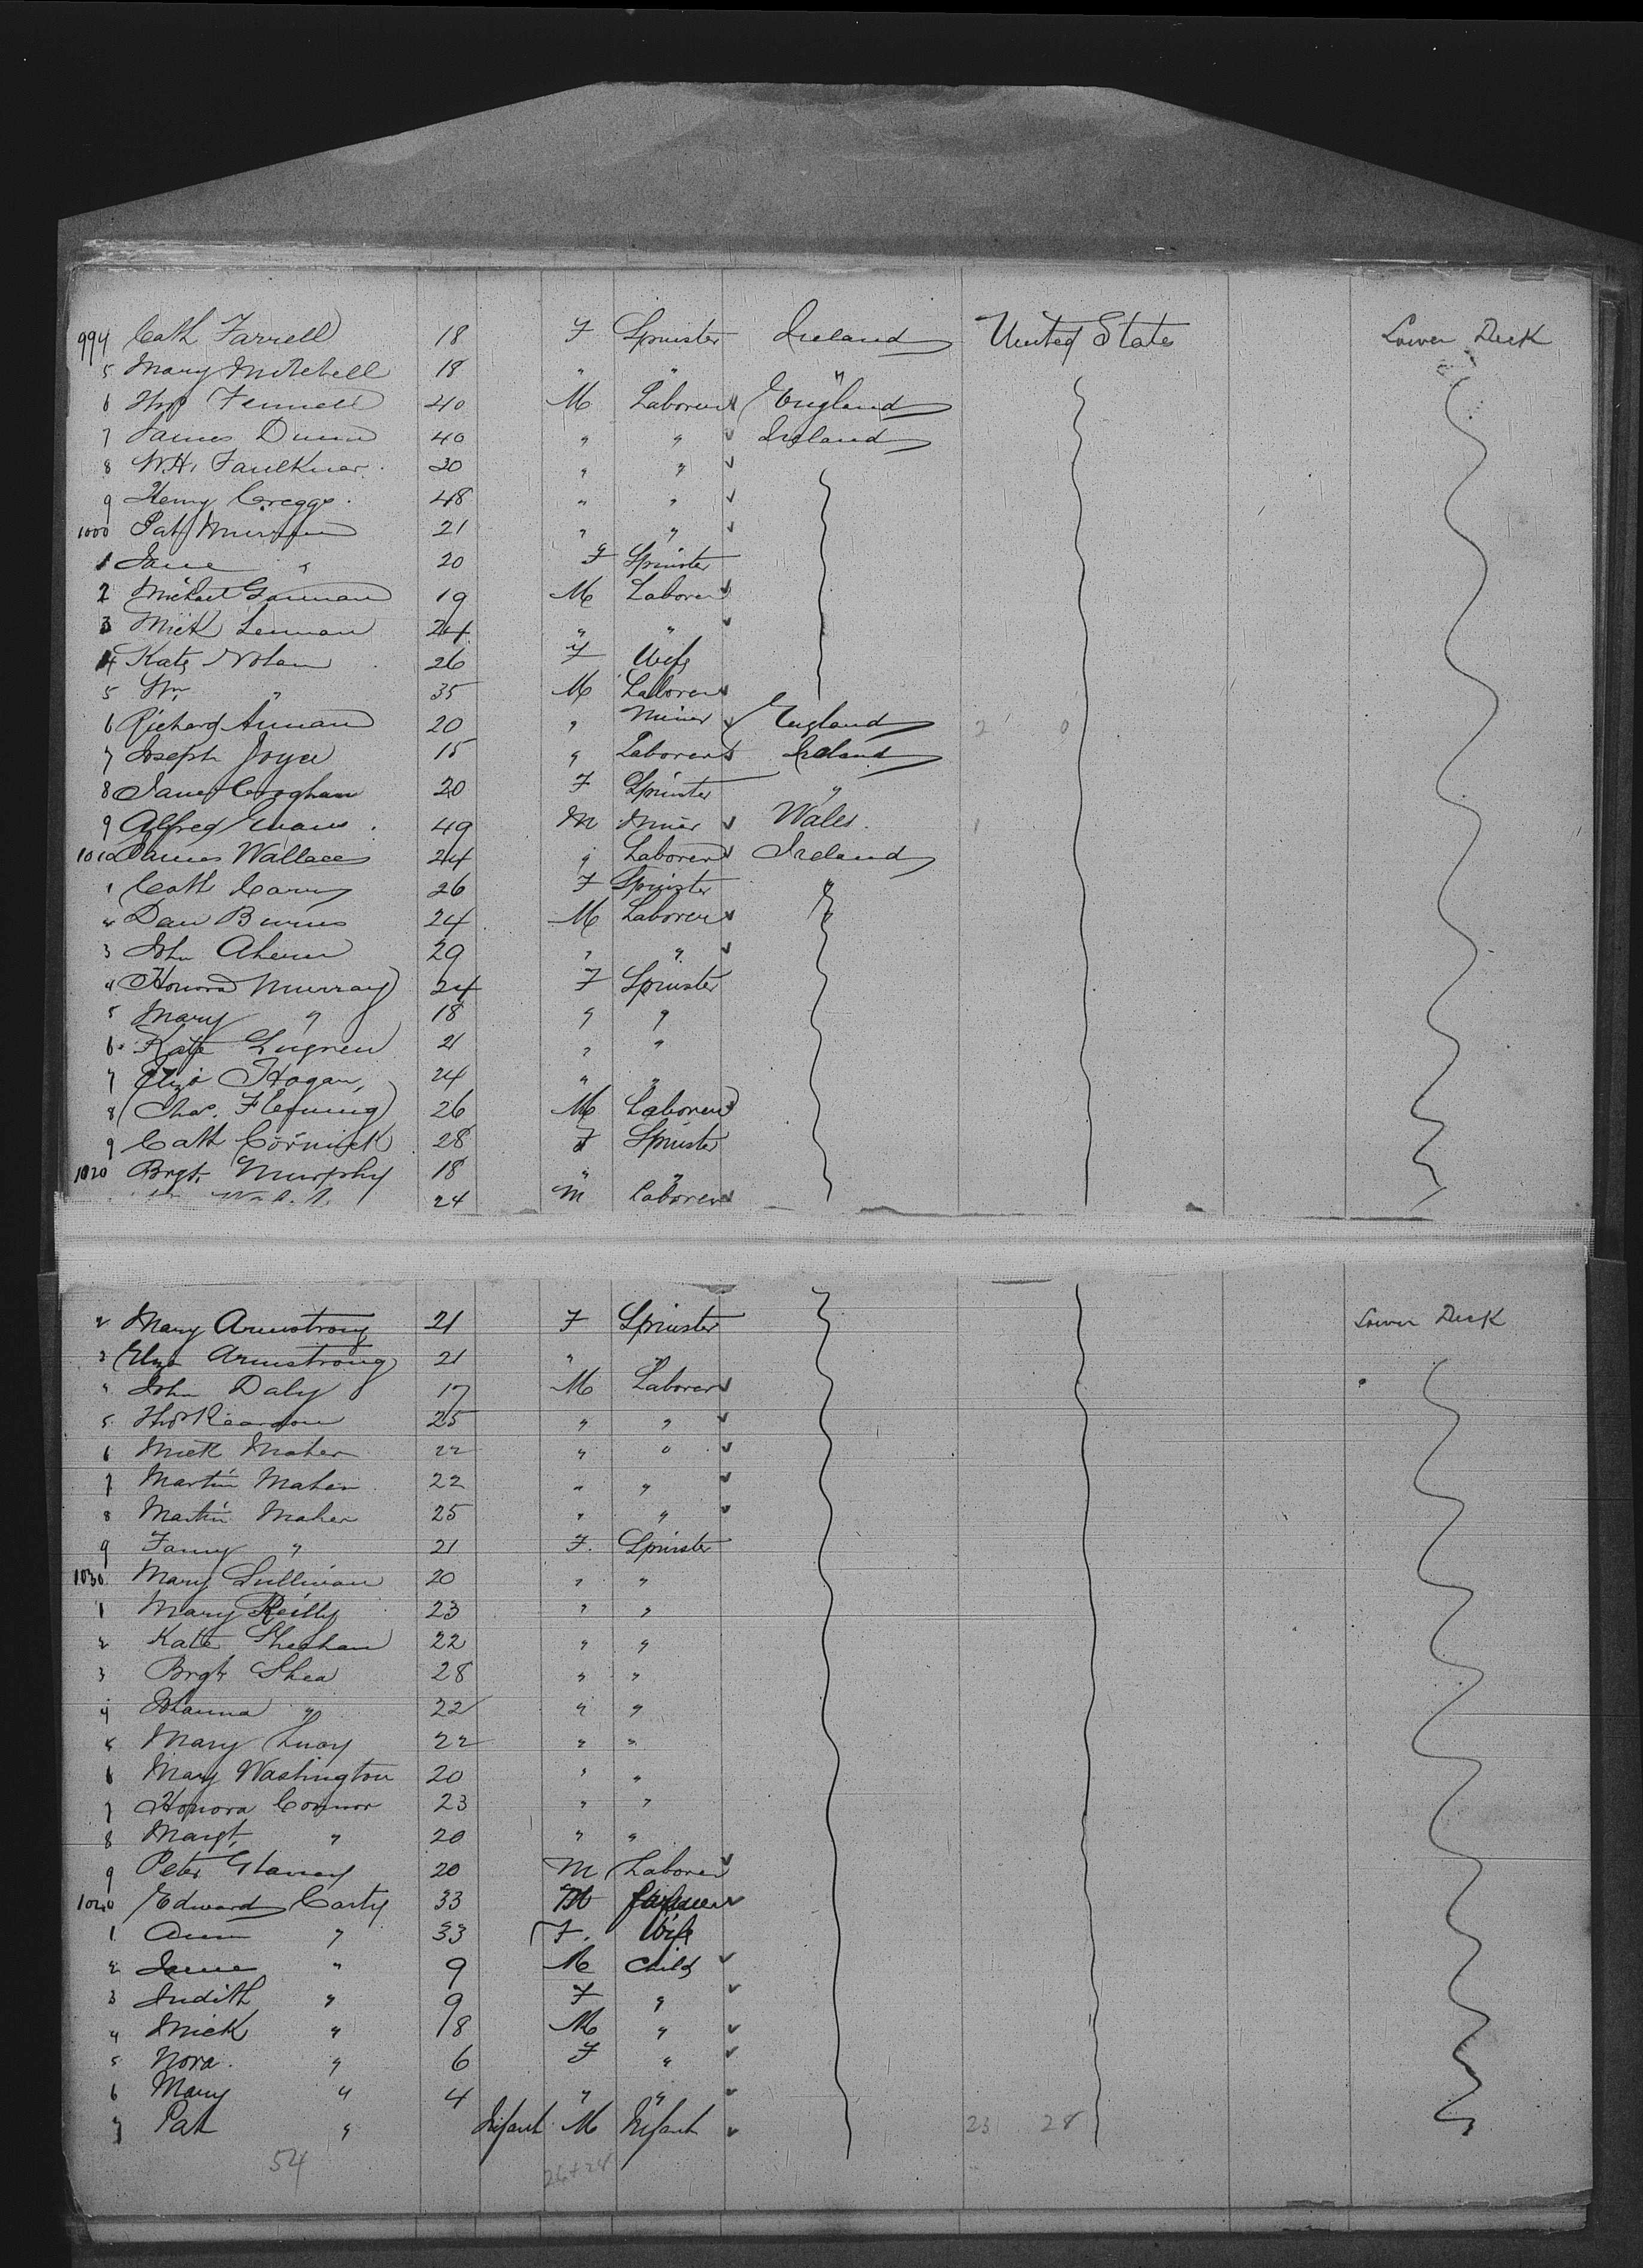 994 Cath Farrell 18 F Spinster Ireland United States Lower Deck
5 Mary Mitchell 18 " " "
6 Thos Fennell 40 M Laborer England
7 James Dunn 40 " " Ireland
8 W.H. Faulkner 30 " "
9 Henry Greggs 48 " "
1000 Pat 21 " "
1 Jane " 20 F Spinster
2 Michael Gannan 19 M Laborer
3 Mick Lennan 24 " "
4 Kate Nolan 26 F Wife
5 Wm " 35 M Laborer
6 Richard Annan 20 " Miner England 2 0
7 Joseph Joyce 15 " Laborer Ireland
8 Jane Croghan 20 F Spinster "
9 Alfred Evans 49 M Miner Wales 1
1010 James Wallace 24 " Laborer Ireland
1 Cath Carey 26 F Spinster "
2 Dan Burns 24 M Laborer "
3 John Ahern 29 " "
4 Honora Murray 24 F Spinster
5 Mary " 18 " "
6 Kate 21 " "
7 Eliza Hogan 24 " "
8 Chas. Fleming 26 M Laborer
9 Cath Cormick 28 F Spinster
1020 Brgt. Murphy 18 " "
24 M Laborer
2 Mary Armstrong 21 F Spinster Lower Deck
3 Eliza Armstrong 21 " "
4 John Daly 17 M Laborer
5 Thos Reardon 25 " "
6 Mick Maher 22 " "
7 Martin Maher 22 " "
8 Martin Maher 25 " "
9 Fanny " 21 F. Spinster
1030 Mary Sullivan 20 " "
1 Mary Reilly 23 " "
2 Kate Sheehan 22 " "
3 Brgt Shea 28 " "
4 Johanna " 22 " "
5 Mary 22 " "
6 Mary Washington 20 " "
7 Honora Connor 23 " "
8 Margt. " 20 " "
9 Peter 20 M Laborer
1040 Edward Carty 33 M Laborer
1 Ann " 33 F. Wife
2 Jame " 9 M Child
3 Judith " 9 F "
4 Mick " 8 M "
5 Nora. " 6 F "
6 Mary " 4 " "
7 Pat " Infant M Infant 23 28
54 26+28